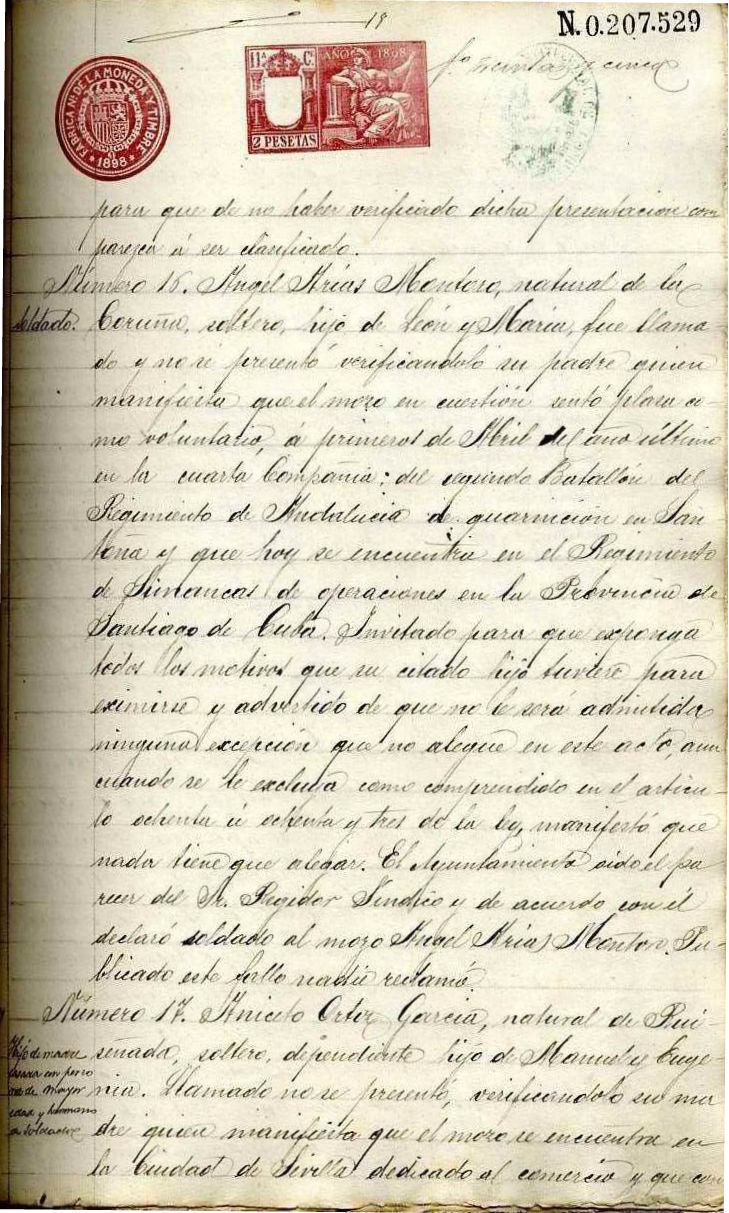 18
N.0.207.529
FÁBRICA NL DE LA MONEDA Y TIMBRE
1898
11ª Cª
AÑO 1898
2 PESETAS
fº treinta y cinco
para que de no haber verificado dicha presentacion com
parezca á ser clasificado.
Número 16. Angel Arias Montoso, natural de la
soldado.
Coruña, soltero, hijo de León y María, fue llama-
do y no se presentó verificandolo su padre quien
manifiesta que el mozo en cuestión sentó plaza co-
mo voluntario, á primeros de Abril del año último
en la cuarta Compañia; del segundo Batallón del
Regimiento de Andalucia de guarnición en San-
toña y que hoy se encuentra en el Regimiento
de Simancas de operaciones en la Provincia de
Santiago de Cuba. Invitado para que exponga
todos los motivos que su citado hijo tuviere para
eximirse y advertido de que no le será admitida
ninguna excepción que no alegue en este acto, aun
cuando se le excluya como comprendido en el articu-
lo ochenta ú ochenta y tres de la ley, manifestó que
nada tiene que alegar. El Ayuntamiento oido el pa-
recer del Sr. Regidor Sindico y de acuerdo con él
declaró soldado al mozo Angel Arias Montoro. Pu-
blicado este fallo nadie reclamó.
Número 17. Aniceto Ortiz Garcia, natural de Rui-
señada, soltero, dependiente hijo de Manuel y Euge-
nia. Llamado no se presentó, verificandolo su ma
dre quien manifiesta que el mozo se encuentra en
la Ciudad de Sevilla dedicado al comercio y que con
Hijo de madre
casada con perso
na de mayor
edad y hermano
de soldado